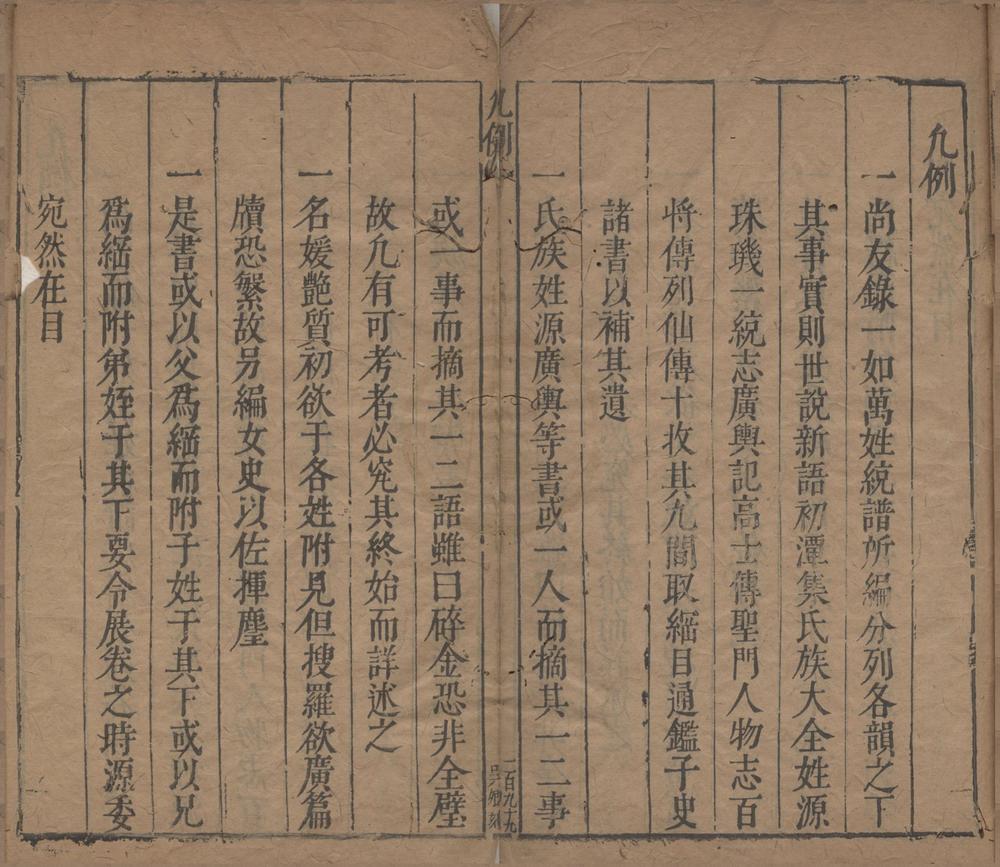 凡例
一尚友錄一如萬姓統譜所編分列各韻之下
其事實則世說新語初潭集氏族大全姓源
珠璣一統志廣輿記高士傳聖門人物志百
將傳列仙傳十收其九間取綱目通鑑子史
諸書以補其遺
一氏族姓源廣輿等書或一人而摘其一二事
凡例
一百九十九
或一事而摘其一二語雖曰碎金恐非全璧
故凡有可考者必究其終始而詳述之
一名媛艷質初欲于各姓附見但搜羅欲廣篇
牘恐繁故另編女史以佐揮麈
一是書或以父爲綱而附子姓于其下或以兄
爲綱而附弟姪于其下要令展卷之時源委
宛然在目